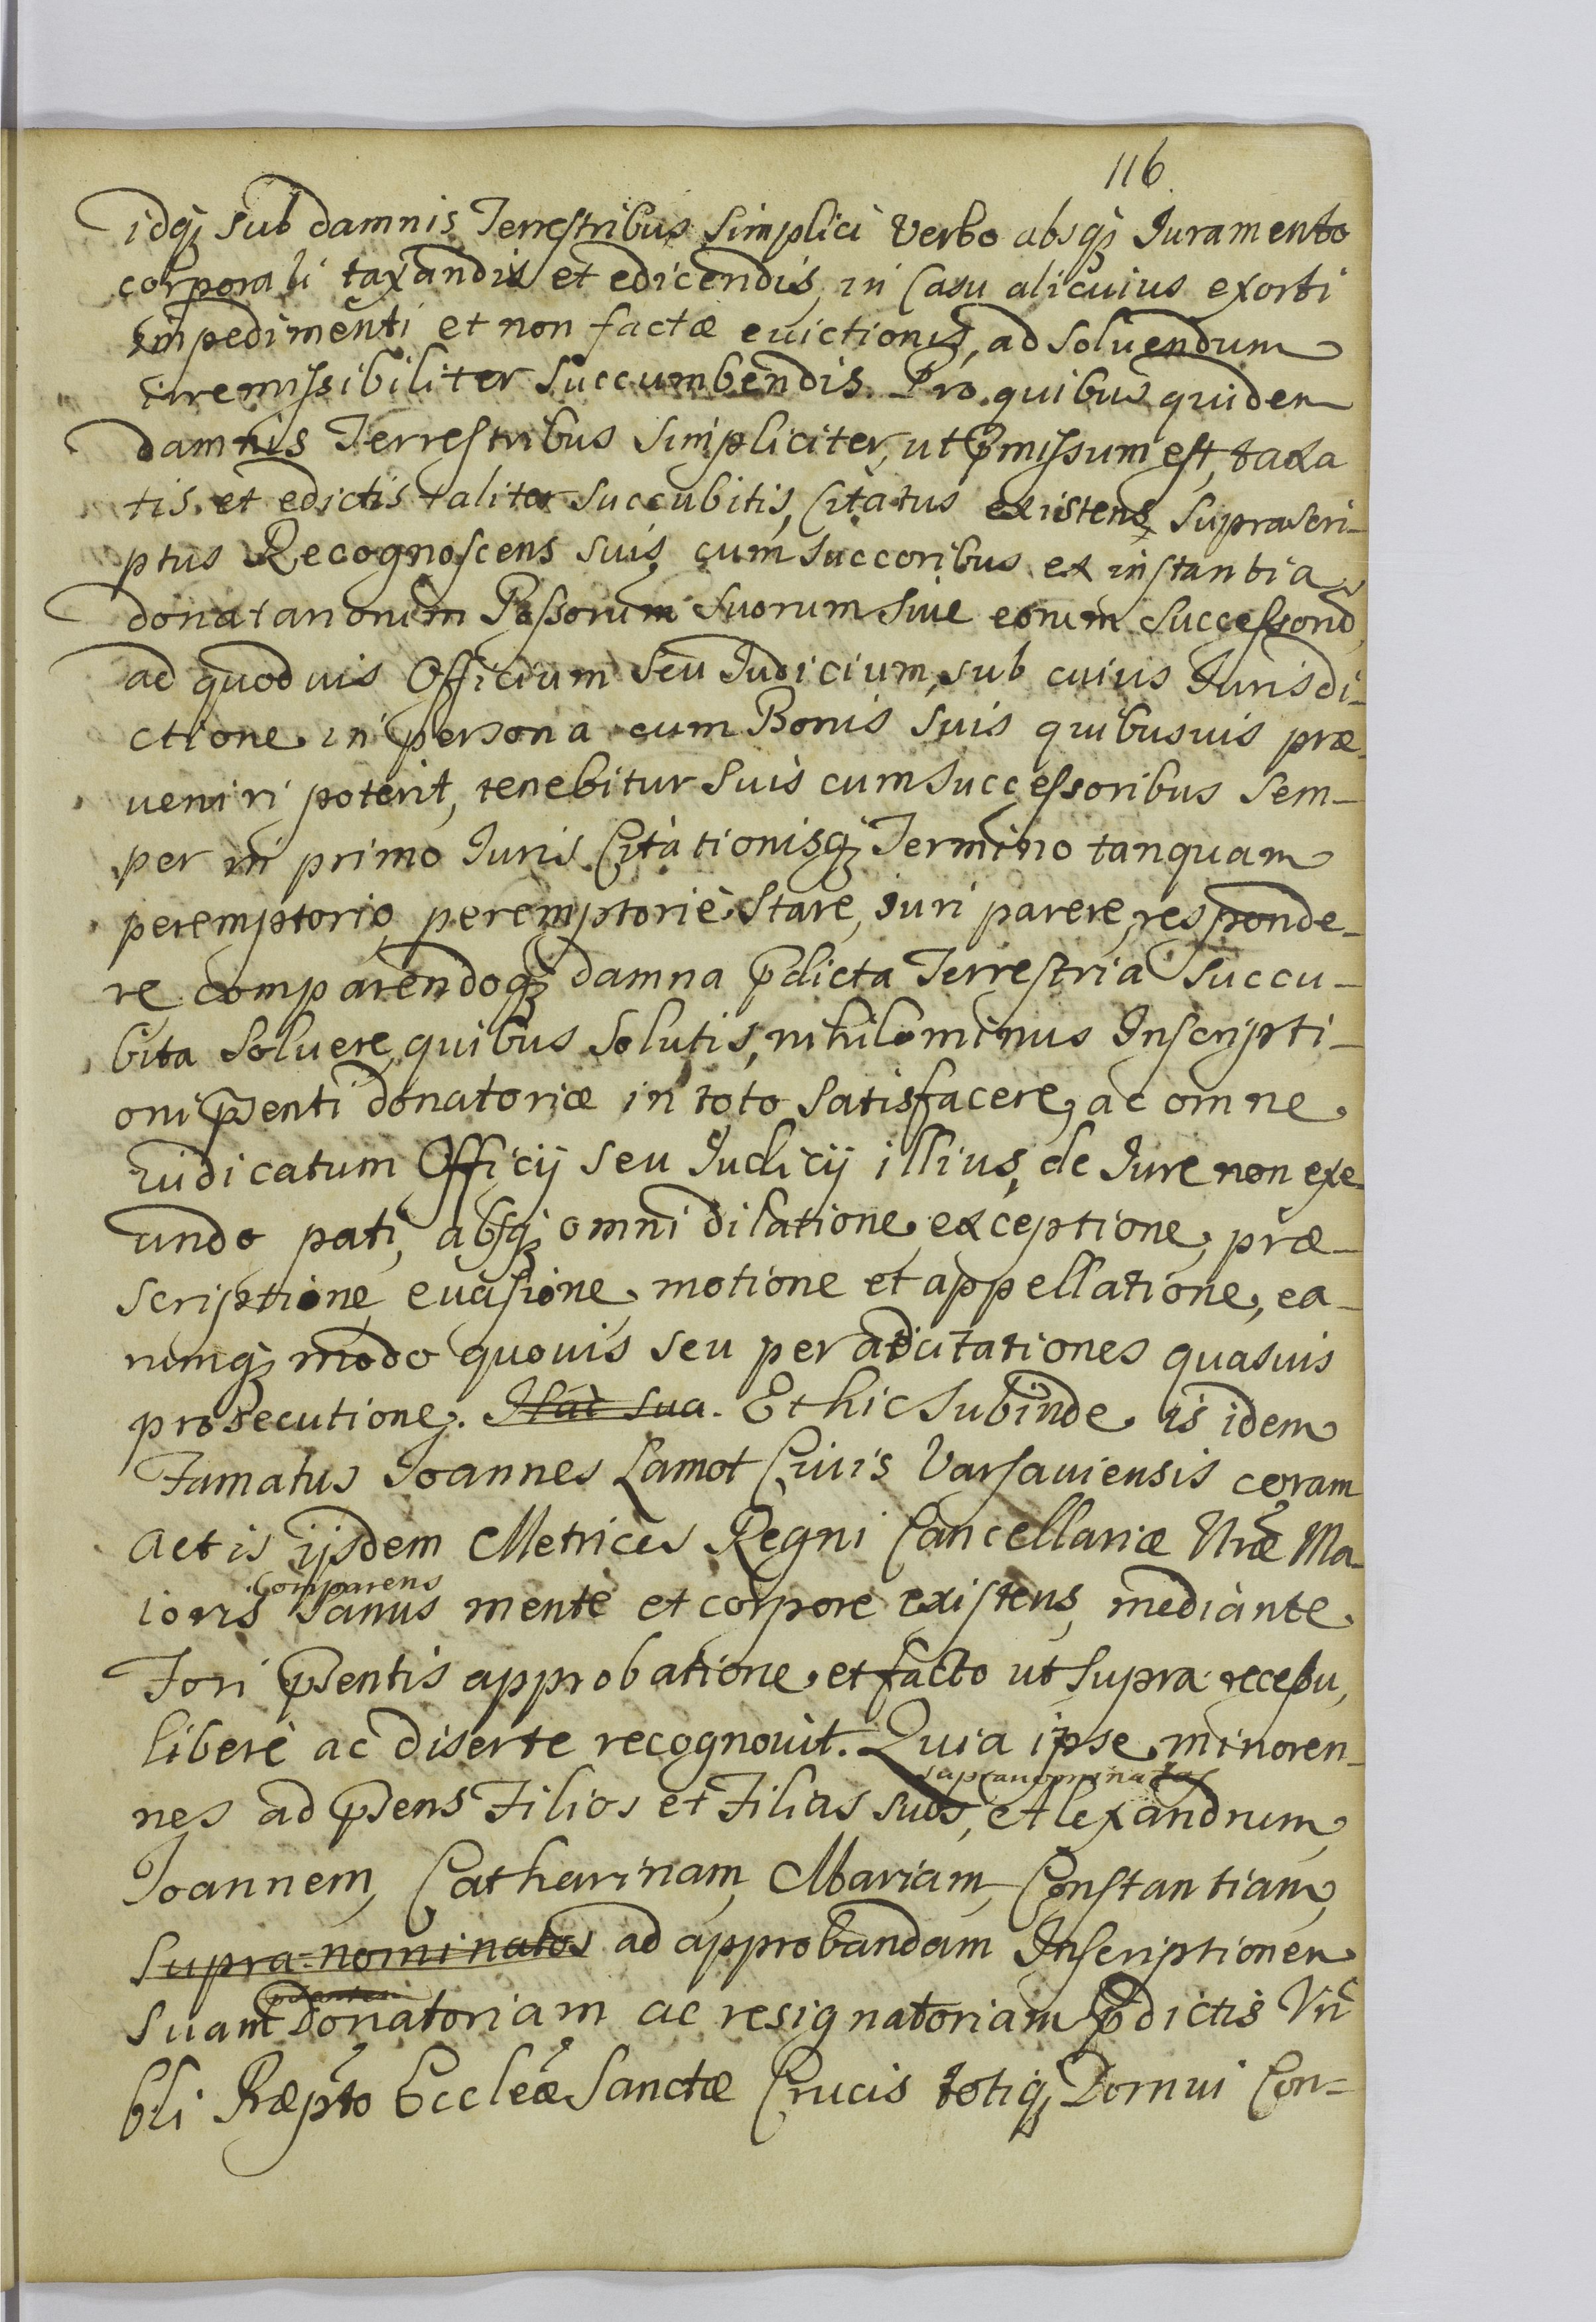 116.
idq₃ sub damnis Terrestribus simplici verbo absq₃ Iuramento
corporali taxandis et edicendis, in Casu alicuius exorti
impedimenti et non factæ euictionis, ad soluendum
irremissibiliter succumbendis. Pro quibus quidem
damnis Terrestribus simpliciter, ut p̄missum est, taxa
tis et edictis taliter succubitis, Citatus existens suprascri-
ptus Recognoscens suis cum succoribus ex instantia
donatariorum Possorum suorum siue eorum Successorũ,
ad quoduis Officium seu Iudicium, sub cuius Iurisdi-
ctione in persona cum Bonis suis quibusuis præ-
ueniri poterit, tenebitur suis cum successoribus sem-
per in primo Iuris Citationisq₃ Termino tanquam
peremptorio peremptoriè stare, iuri parere, responde-
re comparendoq₃ damna p̄dicta Terrestria succu-
bita soluere, quibus solutis, nihilominus Inscripti-
oni p̄senti donatoriæ in toto satisfacere, ac omne
iudicatum Officij seu Iudicij illius, de Iure non exe-
undo pati, absq₃ omni dilatione, exceptione, præ-
scriptione, euasione, motione et appellatione, ea-
rumq₃ modo quouis seu per adcitationes quasuis
prosecutione. Hac sua. Et hic subinde is idem
Famatus Ioannes Lamot Ciuis Varsauiensis coram
Actis ijsdem Metrices Regni Cancellariæ Nr̃æ Ma-
comparens
ioris sanus mente et corpore existens, mediante
Fori p̄sentis approbatione, et facto ut supra recessu,
liberè ac diserte recognouit. Quia ipse minoren-
supranominatos
nes ad p̄sens Filios et Filias suos, Alexandrum,
Ioannem, Catharinam, Mariam, Constantiam,
supra-nominatos ad approbandam Inscriptionem
suam Donatoriam ac resignatoriam p̄dictis Vn̄
bli Præp̃to Eccl̃eæ Sanctæ Crucis totiq₃ Domui Con=